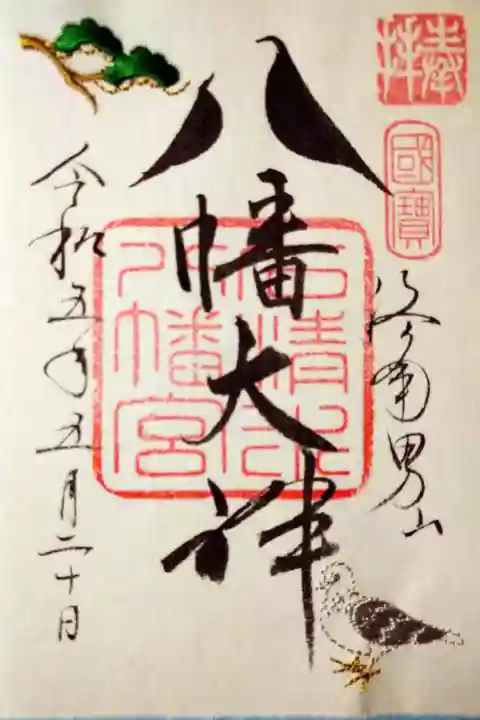 奉拝
國寶
洛南男山
八幡大神
石清水
八幡宮
令和五年五月二十日